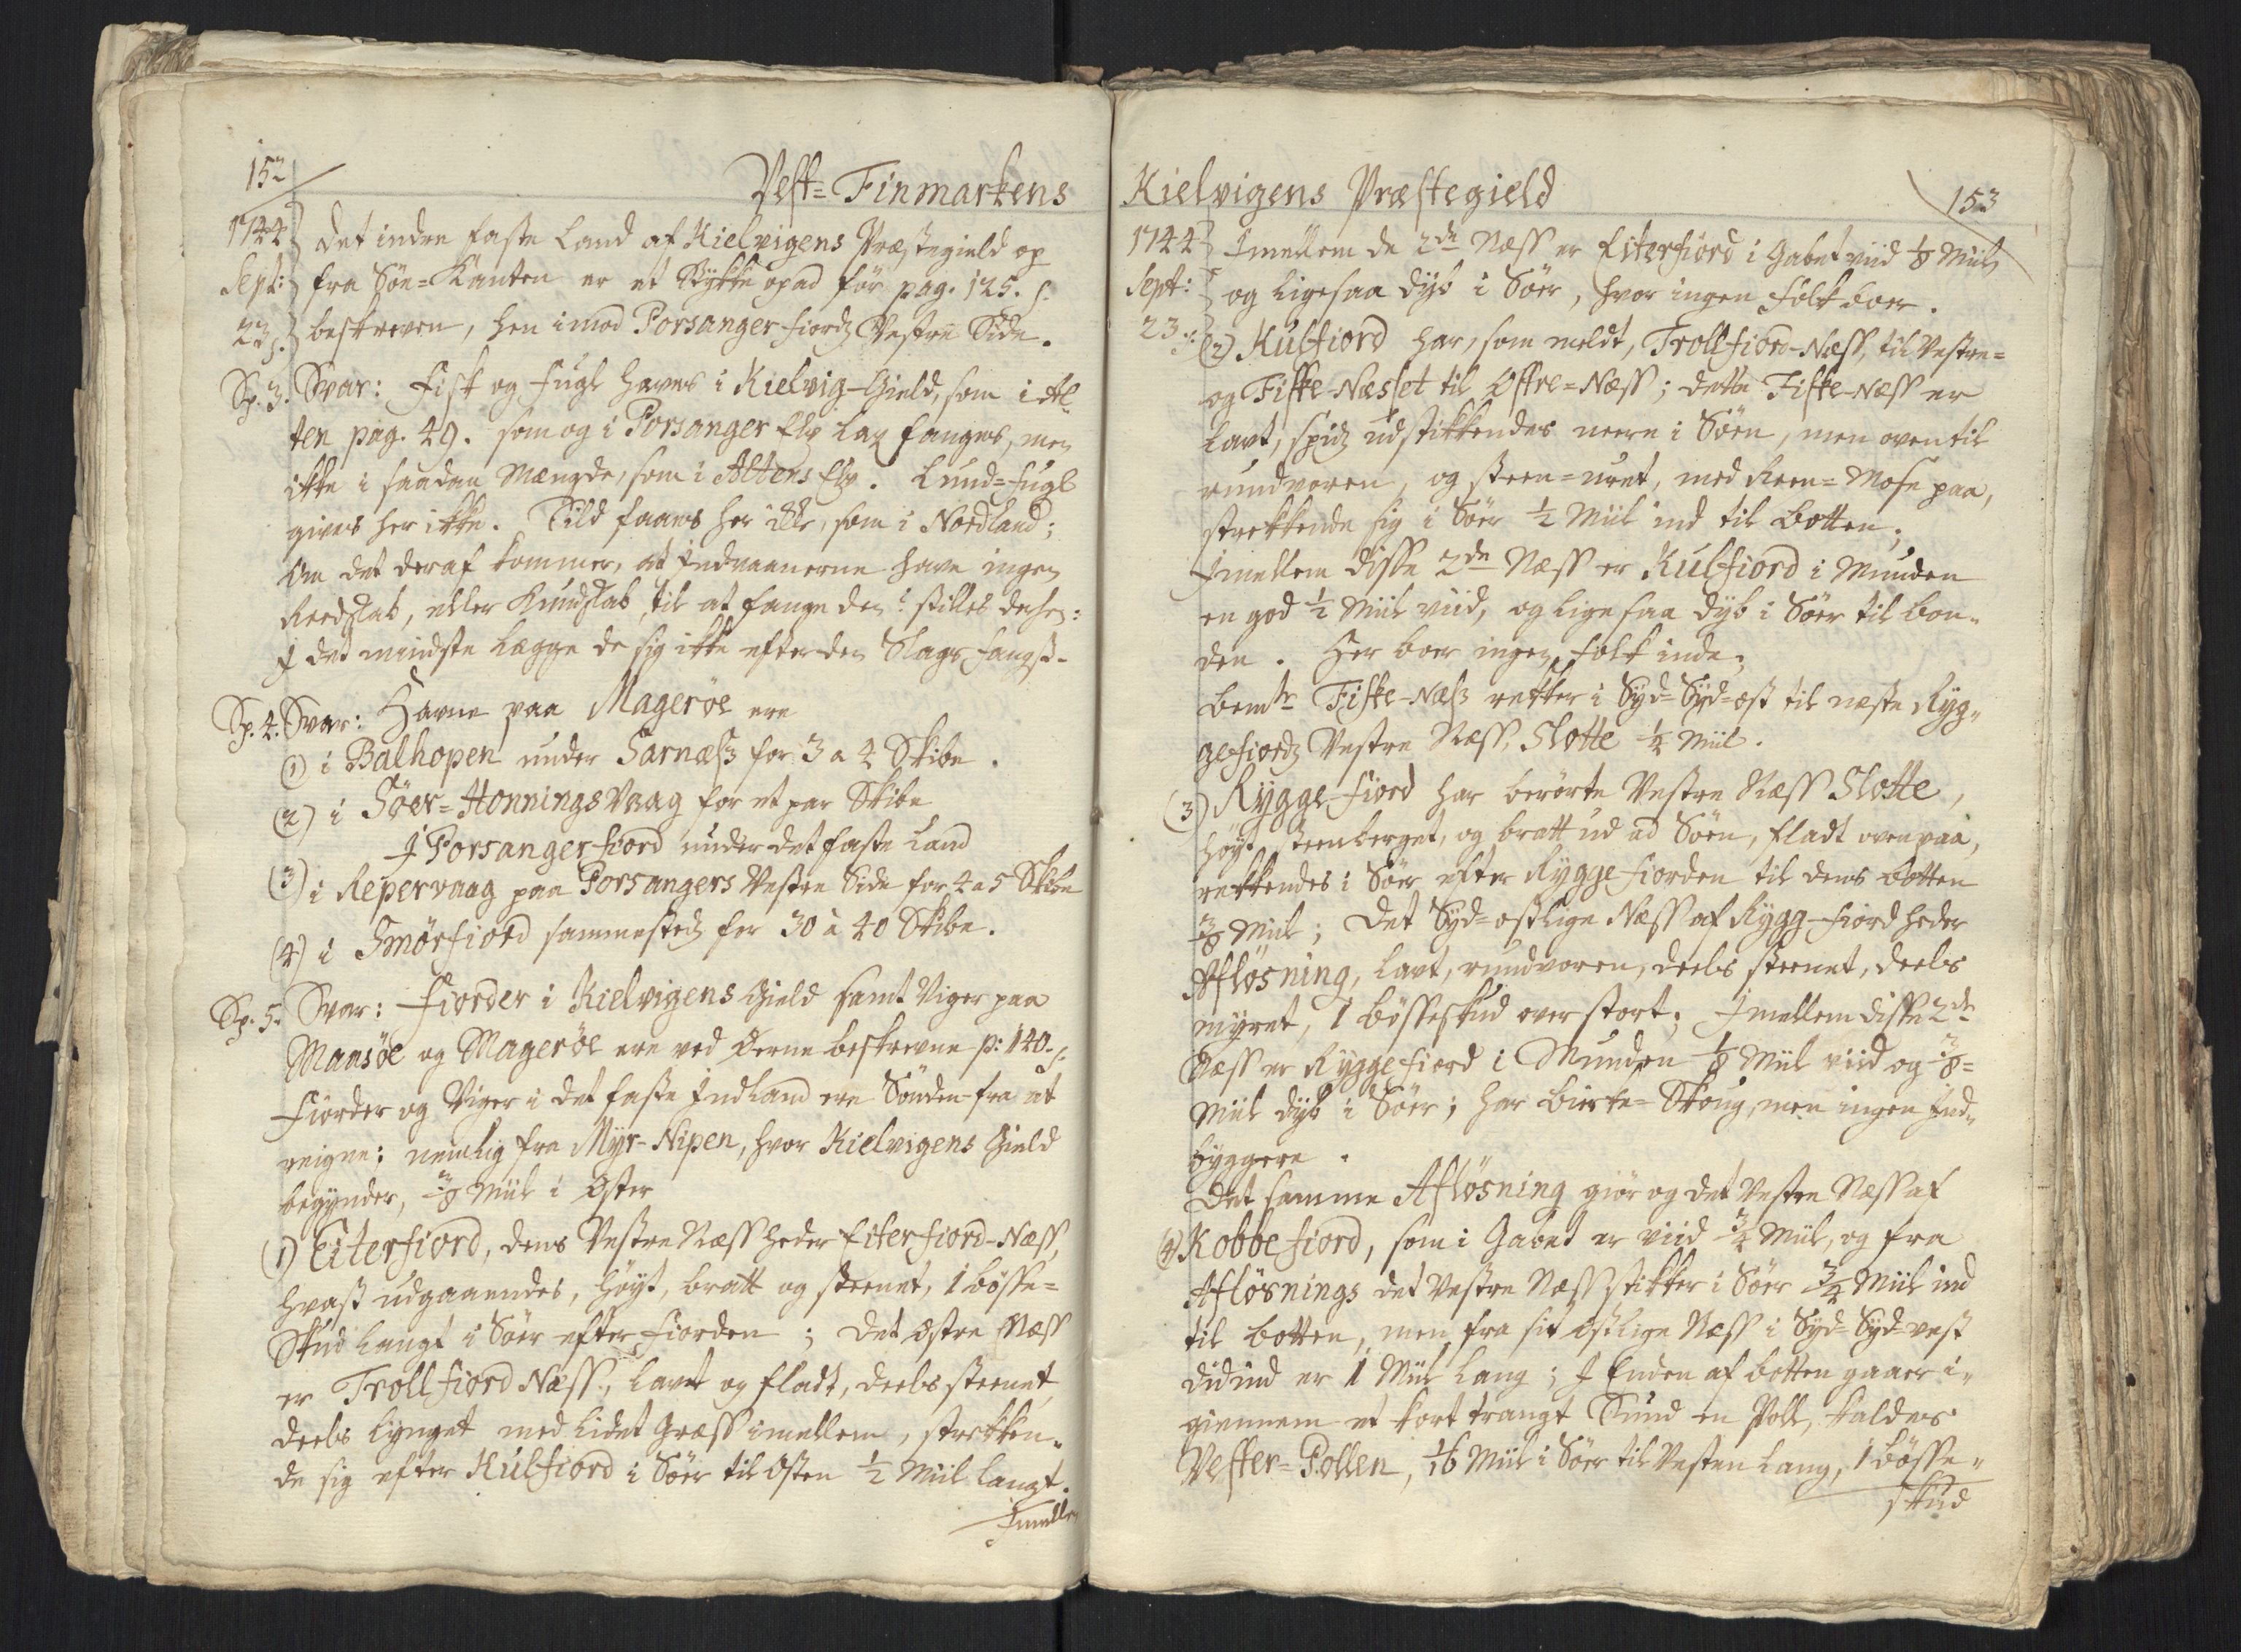 152
Vest=Finmarkens
1744 Det indre faste Land af Kielvigens Præstegield op
Sept: fra Söe=Kanten er et Stykke opad för pag. 125. s.
23 s. beskreven, hen imod Porsanger-fiords Vestre Side.
Sp. 3. Svar: Fisk og Fugl haves i Kielvig-Gield, som i Al-
ten pag. 49. som og i Porsanger Elv Lax fanges, men
ikke i saadan Mængde, som i Altens Elv. Lund=Fugl
gives her ikke. Sild faaes her ikke, som i Nordland;
Om det deraf kommer, at Indvaanerne have ingen
Reedskab, eller Kundskab, til at fange den? stilles dehen:
I det mindste lægge de sig ikke efter den Slags Fangst.
Sp. 4. Svar: Havne paa Mageröe ere
(1) i Balhopen under Sarnæss for 3 a 4 Skibe.
(2) i Söer=Honningsvaag for et par Skibe
I Porsanger-fiord under det faste Land
(3) i Repervaag paa Porsangers Vestre Side for 4 a 5 Skibe
(4) i Smörfiord sammesteds for 30 à 40 Skibe.
Sp. 5. Svar: Fiorder i Kielvigens Gield samt Viger paa
Maasöe og Mageröe ere ved Öerne beskrevne p: 140. s.
Fiorder og Viger i det faste Indland ere Sönden-fra at
reigne; nemlig fra Myr-Nipen, hvor Kielvigens Gield
begynder, 3/8 Miil i Öster
(1) Eiterfiord, dens Vestre Næss heder Eiterfiord-Næss,
hvast udgaaendes, höyt, bratt og steenet, 1 bösse=
Skud langt i Söer efter Fiorden; Det östre Næss
er Trollfiord Næss, lavt og fladt, deels steenet,
deels lynget med lidet Græss imellem, strekken-
de sig efter Kulfiord i Söer til Osten 1/2 Miil langt.
Imellem
Kielvigens Præstegield
153
1744 Imellem de 2de Næss er Eiterfiord i Gabet viid 1/8 Miil
Sept: og ligesaa dyb i Söer, hvor ingen Folk boer.
23 s: (2) Kulfiord har, som meldt, Trollfiord-Næss, til Vestre=
og Fiske-Næsset til Östre=Næss; dette Fiske-Næss er
lavt, spids udstikkendes neere i Söen, men oventil
rundvoren, og steen=uret, med Reen=Mose paa,
strekkende sig i Söer 1/2 Miil ind til Botten;
Imellem disse 2de Næss er Kulfiord i Munden
en god 1/2 Miil viid, og lige saa dyb i Söer til Bon-
den. Her boer ingen Folk inde;
Bemte Fiske-Næss rekker i Syd=Syd=ost til næste Ryg-
gefiords Vestre Næss, Slotte 1/4 Miil.
(3) Ryggefiord har berörte Vestre Næss Slotte,
höyt steenberget, og bratt ud ad Söen, fladt ovenpaa,
rekkendes i Söer efter Ryggefiorden til dens Botten
3/8 Miil; Det Syd=ostlige Næss af Rygg-fiord heder
Aflösning, lavt, rundvoren, deels steenet, deels
myret, 1 bösseskud over stort; Imellem disse 2de
Næss er Ryggefiord i Munden 1/8 Miil viid og 3/8=
Miil dyb i Söer; har Birke=Skoug, men ingen Ind-
byggere.
Det samme Aflösning giör og det Vestre Næss af
(4) Kobbefiord, som i Gabet er viid 3/4 Miil, og fra
Aflösnings det Vestre Næss stikker i Söer 3/4 Miil ind
til Botten, men fra sit östlige Næss i Syd=Syd=vest
did ind er 1 Miil lang; I Enden af Botten gaaer i-
giennem et kort trangt Sund en Poll, kaldes
Vester=Pollen, 1/16 Miil i Söer til Vesten lang, 1 bösse-
skud